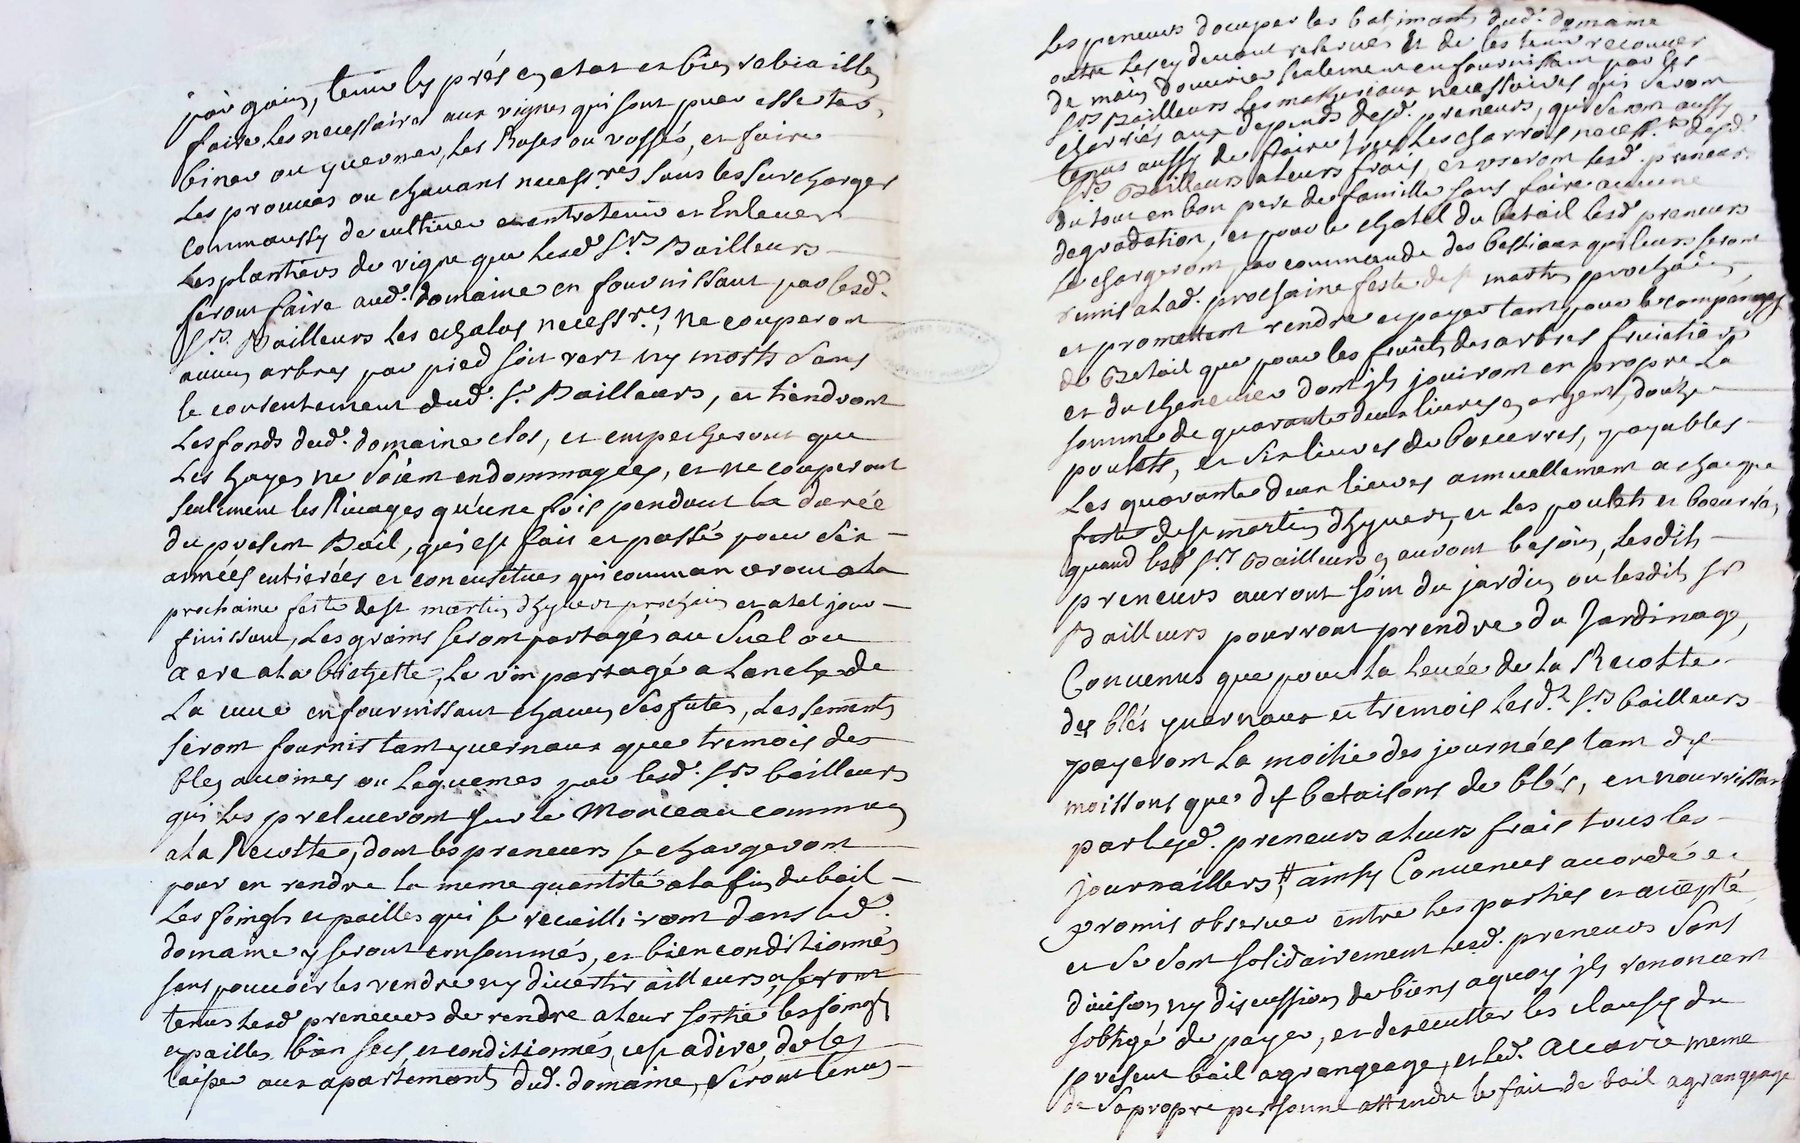 par gain, tenir les prés en etat et bien rabiaillés
faire les necessaires aux vignes qui sont puer essertes,
biner ou querner, les Rases ou vossés, et faire
Les prouves ou chavans necessres sans les surcharger
Comm'aussy de cultiver et entretenir et Enlever
Les plantiers de vigne que lesd. Srs Bailleurs
feront faire aud. domaine en fournissant par lesd.
Srs Bailleurs les echalas necessres, ne couperont
aucun arbres par pied soit vert ny morts sans
le consentement dud. Sr Bailleurs, et tiendront
Les fonds dud. domaine clos, et empecheront que
Les hayes ne soient endommagées, et ne couperont
seulement les Rivages qu'une fois pendant la durée
du present Bail, qui est fait et passé pour six
années entierées et consecutives qui commanceront a la
prochaine feste de st martin d'hyvert prochain et a tel jour
finissant, Les grains seront partagés au suel ou
aere a la bichette, Le vin partagé a lanche de
La cuve en fournissant chacun ses futes, Les sements
seront fournis tant yvernaux que tremois des
bles avoines ou Leguemes par lesd. Srs bailleurs
qui les preleveront sur le Monceau commun
a la Recolte, dont les preneurs se chargeront
pour en rendre la meme quantité a la fin du bail
Les foings et pailles qui se recueilliront dans led.
domaine y seront consommés, et bien conditionnés
sans pouvoir les vendre ny divertir ailleurs, seront
tenus lesd preneurs de rendre a leur sortie les foings
et pailles bien secs, et conditionnés, cest a dire de les
laisser aux apartements dud. domaine, seront tenus
Les preneurs d'ocuper les batimants dud. domaine
outre les cy devant reservés et de les tenir recouver
de main d'ouvrier seulement en fournissant par les
Srs Bailleurs les materiaux necessaires qui seront
charriés aux depends desd. preneurs, qui seront aussy
tenus aussy de faire tous les charrois necess.res desd.
Srs Bailleurs a leurs frais, et useront lesd. preneurs
du tout en bon pere de famille sans faire aucune
degradation, et pour le chatel du betail lesd preneurs
se chargeront par commande des bestiaux qui leurs seront
remis a lad. prochaine feste de st martin prochain,
et promettent rendre et payer tant pour le companage
du Betail que pour les fruits des arbres fruitiers
et du chenevier dont ils jouiront en propre La
somme de quarante deux livres en argent, douze
poulets, et six livres de boeurres, payables
Les quarante deux livres annuellement a chaque
feste de st martin d'hyvert, et les poulets et boeurre,
quand lesd Srs Bailleurs en auront besoin, Lesdits
preneurs auront soin du jardin ou lesdits Srs
Bailleurs pourront prendre du Jardinage,
Convenus que pour la Levée de la Recolte
des blés yvernaux et tremois Lesd.s Srs bailleurs
payeront La moitié des journées tant des
moissons que des bataisons de blés, en nourrissant
par lesd. preneurs a leurs frais tous les
journailliers, # ainsy Convenus accordé et
promis observer entre les parties et accepté
et se sont solidairement lesd. preneurs sans
division ny discussion de biens a quoy ils renoncent
s'obligé de payer, et d'executter les clauses du
present bail a grangeage, et led. Accarie meme
de sa propre personne attendu le fait de bail a grangeage